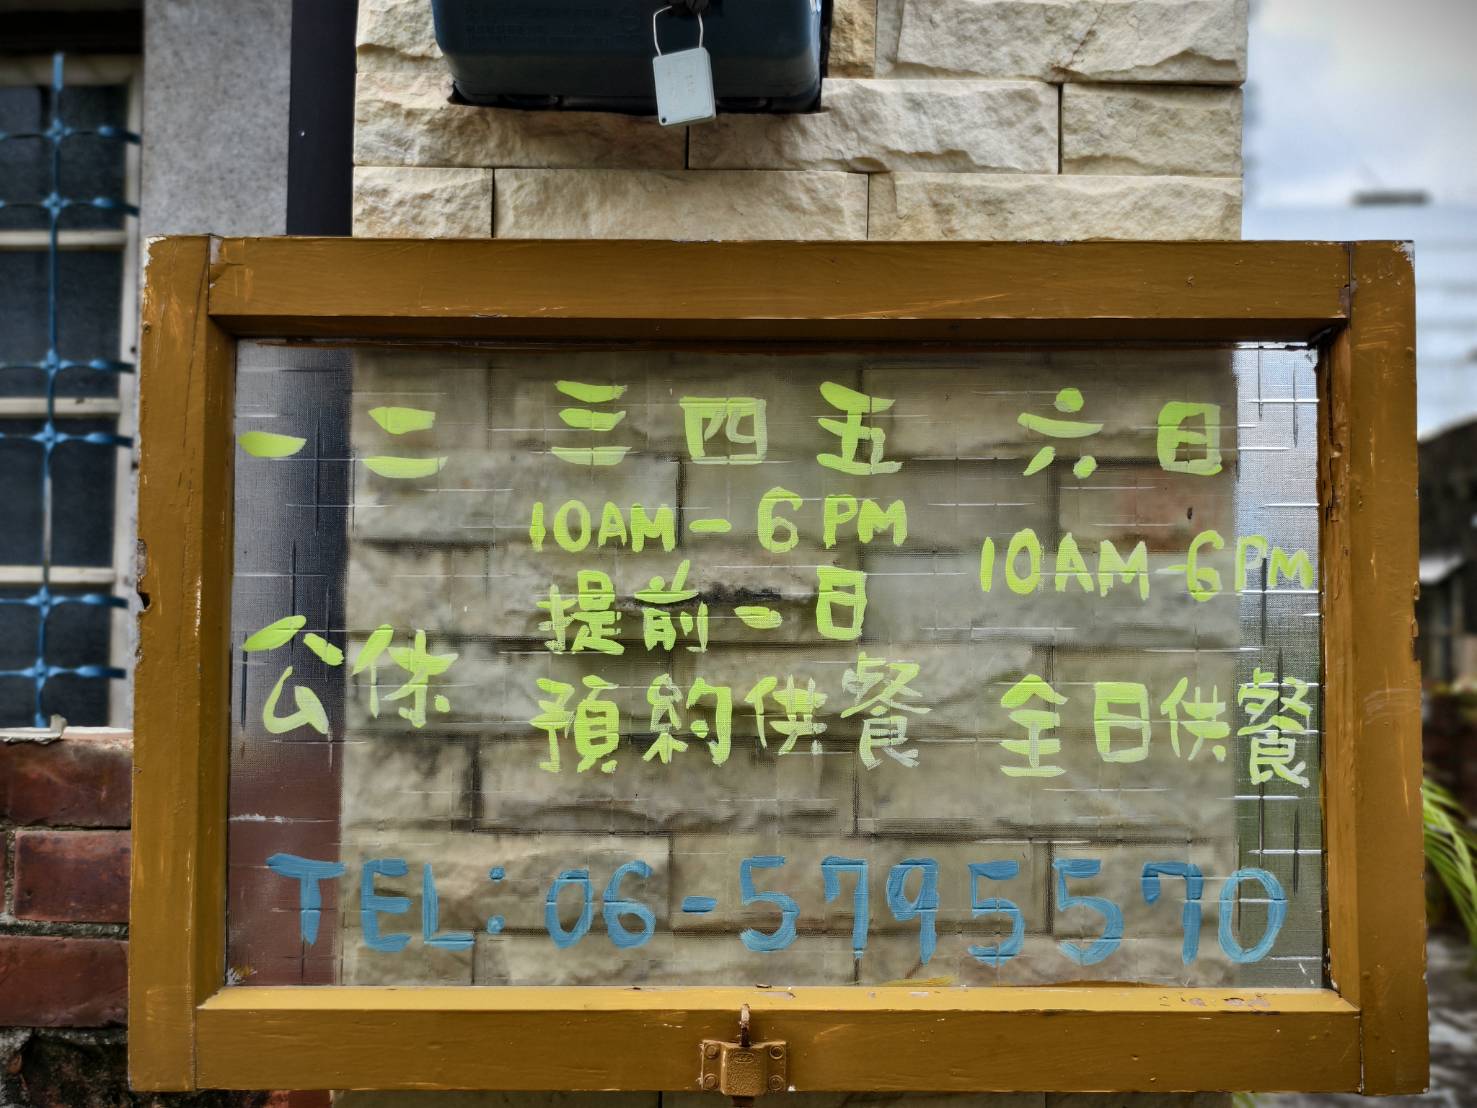 一 二 三 四 五 六 日
10AM-6PM
10AM-6PM
公休
提前一日
預約供餐
全日供餐
TEL:06-5795570